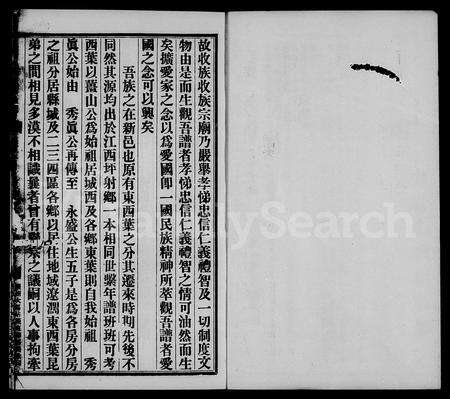 故收族收族宗廟乃嚴舉孝悌忠信仁義禮智及一切制度文
物由是而生觀吾譜者孝悌忠信仁義禮智之情可油然而生
矣擴愛家之念以爲愛國即一國民族精神所萃觀吾譜者愛
國之念可以興矣
吾族之在新邑也原有東西葉之分其遷來時期先後不
同然其源均出於江西坪射鄉一本相同世繫年譜班班可考
西葉以薑山公爲始祖居城西及各鄉東葉則自我始祖 秀
眞公始由 秀眞公再傳至 永盛公生五子是爲各房分房
之祖分居縣城及二三四區各鄉以居住地域遼濶東西葉昆
弟之間相見多漠不相識曩者曾有聯宗之議嗣以人事拘牽
FamilySearch